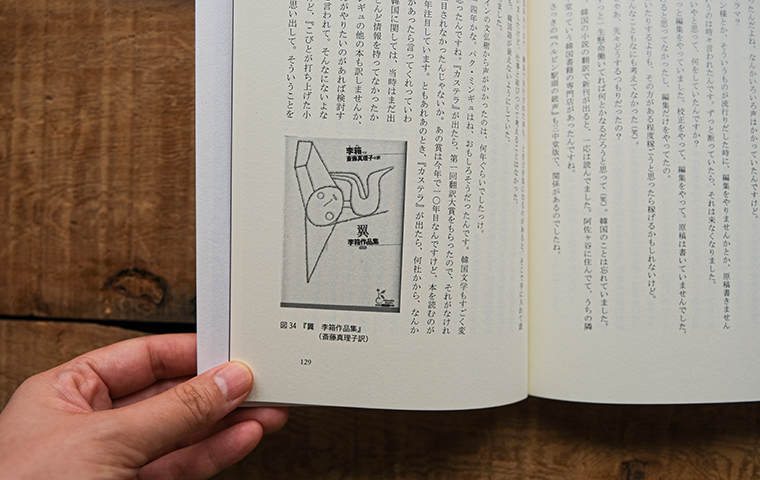 ったんだよね。なんかいろいろ声はかかっていたんですけど。
ラマ？
ン様とか、そういうものが流行りだした時に、編集をやりませんかとか、原稿書きません
うのは時々言われたんです。ずっと断っていたら、それは来なくなりました。
いやと思って、何をしていたんですか？
っと編集をやっていました。校正をやって、編集をやって、原稿は書いていませんでした。
と思ってなかったし、編集だけをやってたの。
いたりするよりも、その方がある程度稼ごうと思ったら稼げるかもしれないけど。
んなことなにも考えてなかった（笑）。
じゃあ、先々どうするつもりだったの？
っと一生懸命働いてれば何とかなるだろうと思って（笑）。韓国のことは忘れていました。
韓国の小説の翻訳で新刊が出ると、一応は読んでました。阿佐ヶ谷に住んでて、うちの隣
堂っていう韓国書籍の専門店があったんですね。
さっきの『ハルビン駅頭の銃声』も三中堂版で、関係があるのでしたね。
も、韓国語が衰えないようにしていた。
ました。
インの文弘樹から声がかかったのは、何年ぐらいでしたっけ。
四年かな。パク・ミンギュはね、おもしろそうだったんです。韓国文学もすごく変
思ったんですね。『カステラ』が出たら、第一回翻訳大賞をもらったので、それがなけれ
目されなかったんじゃないか。あの賞は今年で一〇年目なんですけど、本を読むのが
年注目しています。ともあれあのとき、『カステラ』が出たら、何社かから、なんか
があったら言ってくれっていわ
韓国に関しては、当時はまだ出
とんど情報を持ってなかったか
ギュの他の本も訳しませんか、
がやりたいのがあれば検討す
言われて。そんなにないよな
ど、『こびとが打ち上げた小
思い出して。そういうことを
李箱
斎藤真理子
翼
李箱作品集
図34 『翼　李箱作品集』
（斎藤真理子訳）
129